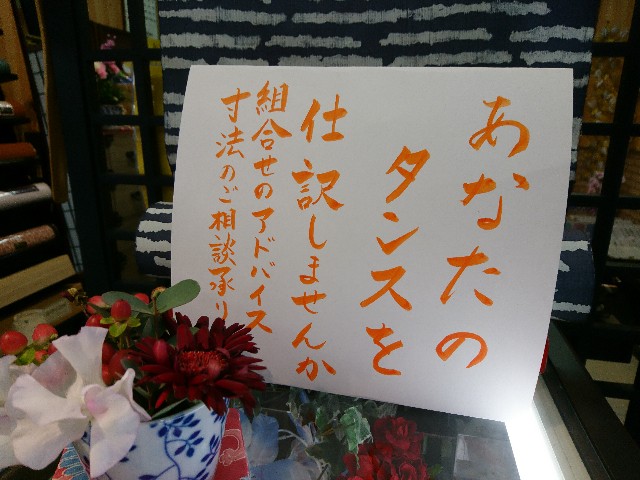 あなたの
タンスを
仕訳しませんか
組合せのアドバイス
寸法のご相談承り